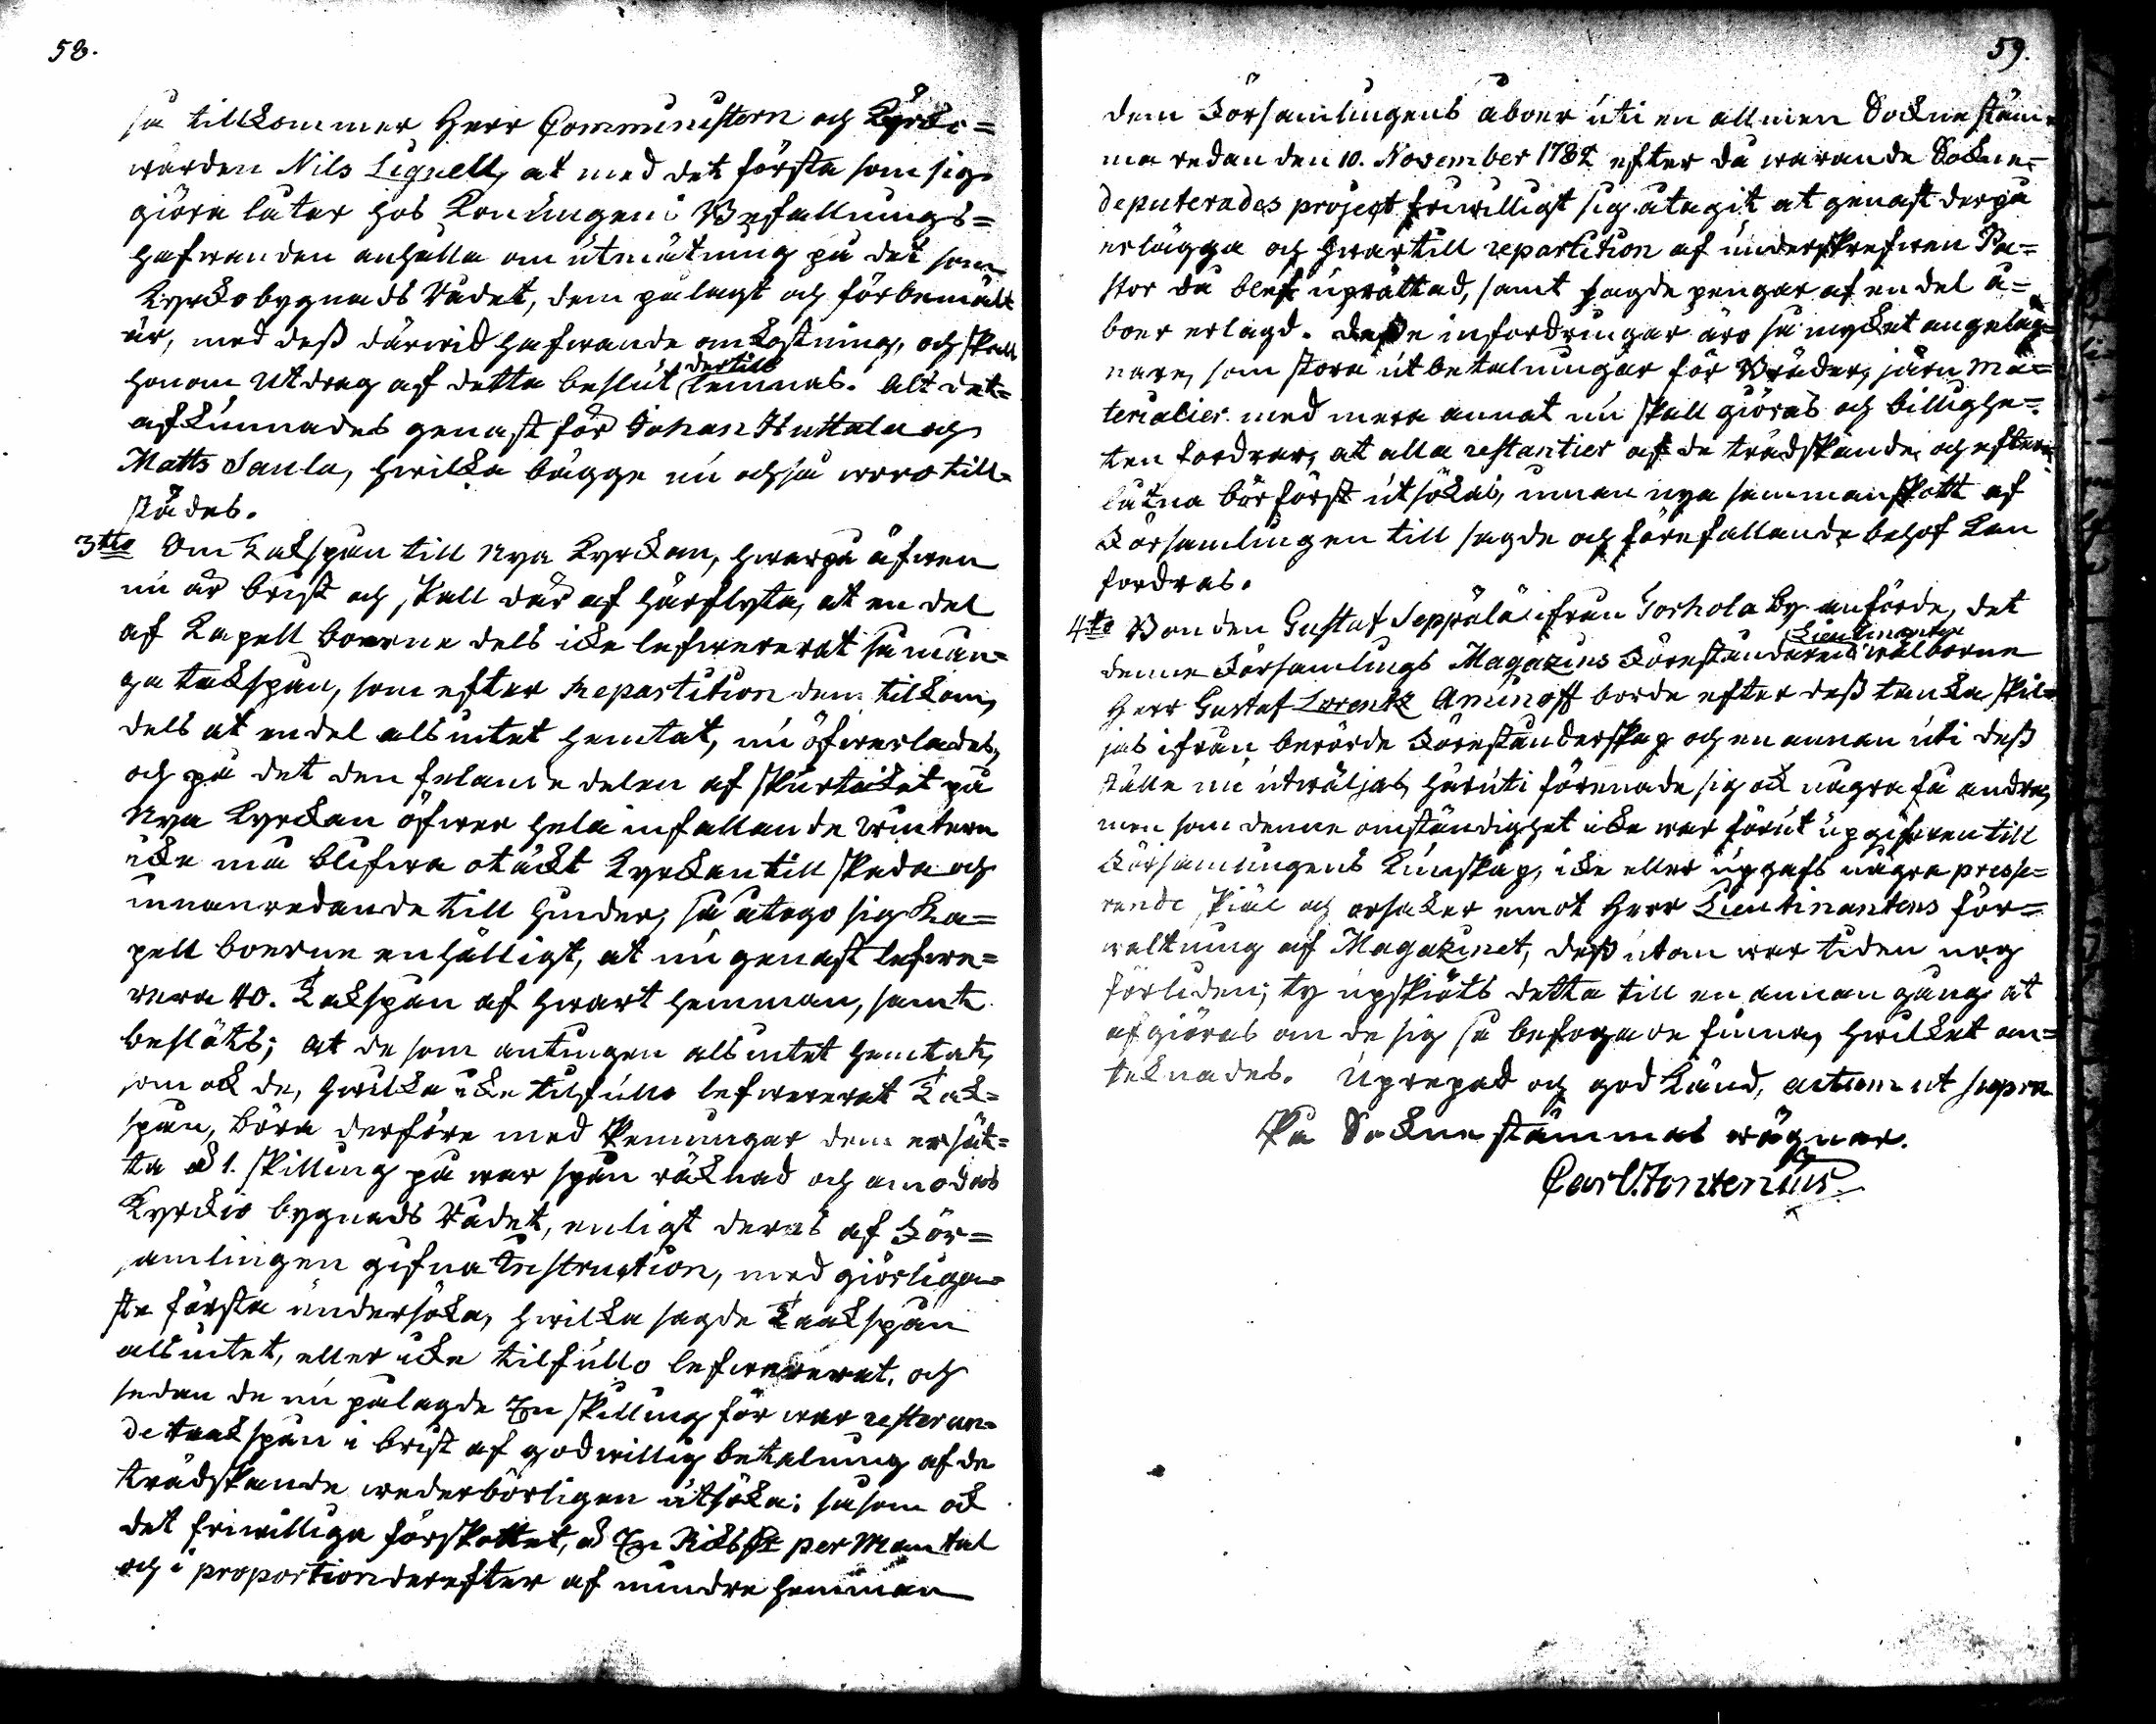 58.
så tillkommer Herr Comministern och Kyrko=
wärden Nils Lignell, at med det första som sig
giöra låter hos Konungens Befallnings=
hafwanden anhålla om utmätning på det som
Kyrkobygnads Rådet, dem pålagt och förbemält
är, med dess därwid hafwande omkostning, och skall
dertill
honom Utdrag af detta beslut lemnas. Alt det=
afkunnades genast för Johan Huttala och
Matts Saula, hwilka bägge nu ochså woro till=
städes.
3tio Om Takspån till Nya Kyrckan, hwarpå äfwen
nu är brist och skall där af härflyta, at en del
af Kapell boerne dels icke lefwererat så mån=
ga takspån, som efter Repartition dem tilkom,
dels at en del alsintet hemtat, nu öfwerlades,
och på det den felande delen af skurtaket på
Nya Kyrckan öfwer hela infallande Wintern
icke må blifwa otäckt Kyrckan till skada och
innanredande till hinder, så åtogo sig Ka=
pell boerne enhälligt, at nu genast lefwe=
rera 40. Takspån af hwart hemman, samt
beslöts; at de som antingen alsintet hemtat,
som ock de, hwilka icke tilfullo lefwererat Tak=
spån, böra derföre med Penningar dem ersät=
ta à 1. skilling på war spån räknad och amodas
Kyrckio bygnads Rådet, enligt deras af För=
samlingen gifna Instruction, med giörliga=
ste första undersöka, hwilka sagde Taakspån
alsintet, eller icke tilfullo lefwererat, och
sedan de nu pålagde En skilling för war resteran=
de taakspån i brist af godwillig betalning af de
trädskande wederbörligen utsöka; såsom ock
det friwilliga förskottet, à En Riksdr per Mantal
och i proportion derefter af mindre hemman
59.
dem Församlingens åboer uti en allmen Sockne stäm=
ma redan den 10. November 1782 efter då warande Sockne=
deputerades project friwilligt sig åtagit at genast derpå
erlägga och hwartill repartition af underskrefwen Pa=
stor då blef uprättad, samt sagde pengar af en del å=
boer erlagd. Desse infordringar äro så mycket angeläg=
nare, som stora utbetalningar för Bräder, järn Ma=
terialier med mera annat nu skall giöras och billighe=
ten fordrar, at alla restantier af de trädskande och efter=
låtna bör först utsökas, innan nya sammanskott af
Församlingen till sagde och förefallande behof kan
fordras.
4to Bonden Gustaf Seppälä ifrån Torhola By anförde, det
Lieutinanten
denne Församlings Magazins Föreståndaren wälborne
Herr Gustaf Lorentz Aminoff borde efter dess tanka skil=
jas ifrån berörde Föreståndarskap och en annan uti dess
ställe nu utwäljas, häruti förenade sig ock några få andra,
men som denne omständighet icke war förut upgifwen till
Församlingens kunskap, icke eller upgafs några presse=
rande skiäl och orsaker emot Herr Lieutinantens för=
waltning af Magazinet, dess utom war tiden nog
förliden; ty upskiöts detta till en annan gång at
afgiöras om de sig så befogade finna, hwilket an=
teknades. Uprepad och god känd, actum ut supra
På Sockne stämmas wägnar.
Carl Fontenius